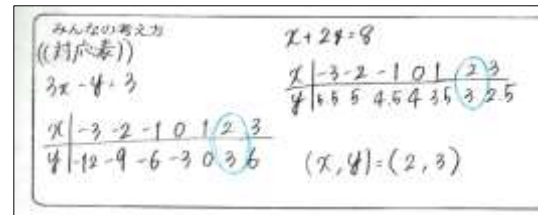 みんなの考え方
((対応表))
3x-y=3
x -3 -2 -1 0 1 2 3
y -12 -9 -6 -3 0 3 6
x+2y=8
x -3 -2 -1 0 1 2 3
y 5.5 5 4.5 4 3.5 3 2.5
(x,y)=(2,3)